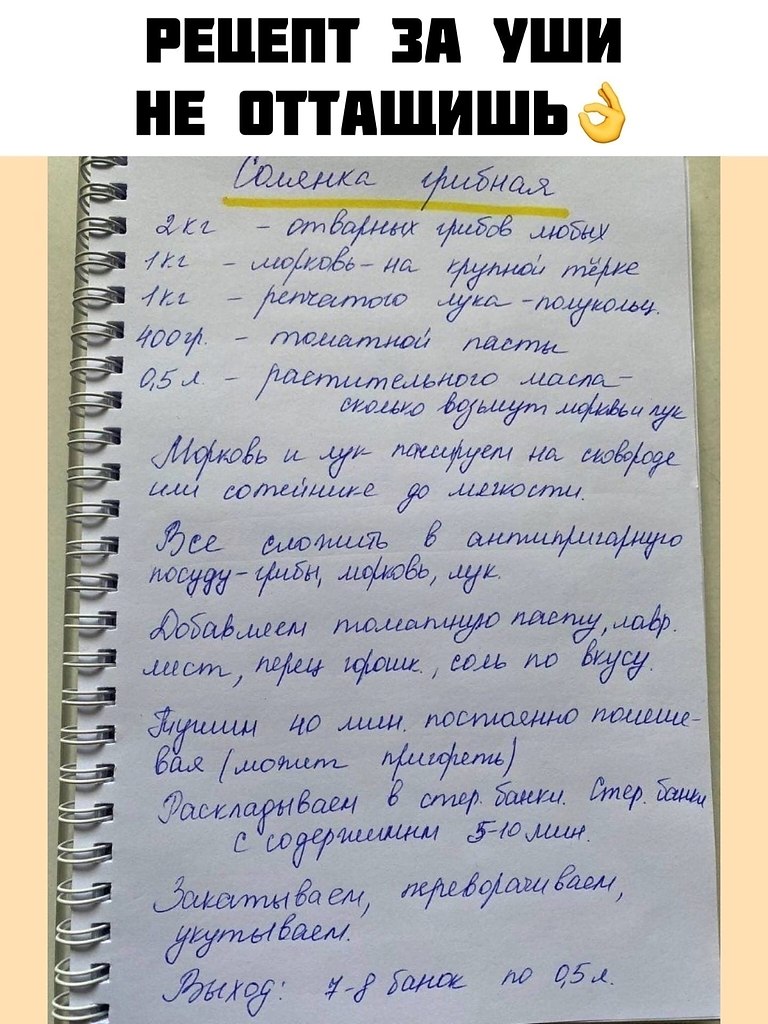 РЕЦЕПТ ЗА УШИ
НЕ ОТТАЩИШЬ👌
Солянка грибная
2 кг – отварных грибов любых
1 кг – морковь – на крупной тёрке
1 кг – репчатого лука – полукольц.
400 гр. – томатной пасты
0,5 л. – растительного масла –
сколько возьмут морковь и лук
Морковь и лук пассируем на сковороде
или сотейнике до мягкости.
Все сложить в антипригарную
посуду – грибы, морковь, лук.
Добавляем томатную пасту, лавр.
лист, перец горошк., соль по вкусу.
Тушим 40 мин. постоянно помеши-
вая (может пригореть)
Раскладываем в стер. банки. Стер. банки
с содержимым 5-10 мин.
Закатываем, переворачиваем,
укутываем.
Выход: 7-8 банок по 0,5 л.